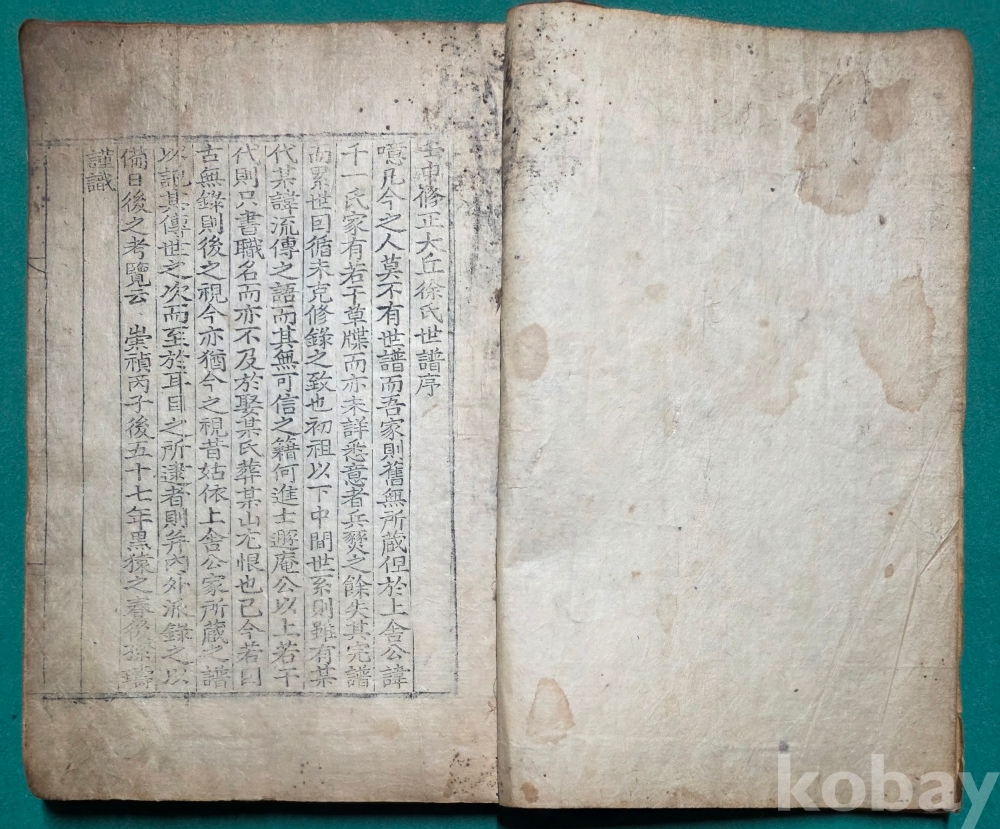 壬申修正大丘徐氏世譜序
噫凡今之人莫不有世譜而吾家則舊無所蔵但於上舍公諱
千一氏家有若干草牒而亦未詳悉意者兵燹之餘失其完譜
而累世因循未克修錄之致也初祖以下中間世系則雖有某
代某諱流傳之語而其無可信之籍何進士遯庵公以上若干
代則只書職名而亦不及於娶某氏葬某山尤恨也已今若曰
古無錄則後之視今亦猶今之視昔姑依上舍公家所蔵之譜
以記其傳世之次而至於耳目之所逮者則并內外派錄之以
備日後之考覽云 崇禎丙子後五十七年黑猿之春後孫
謹識
kobay